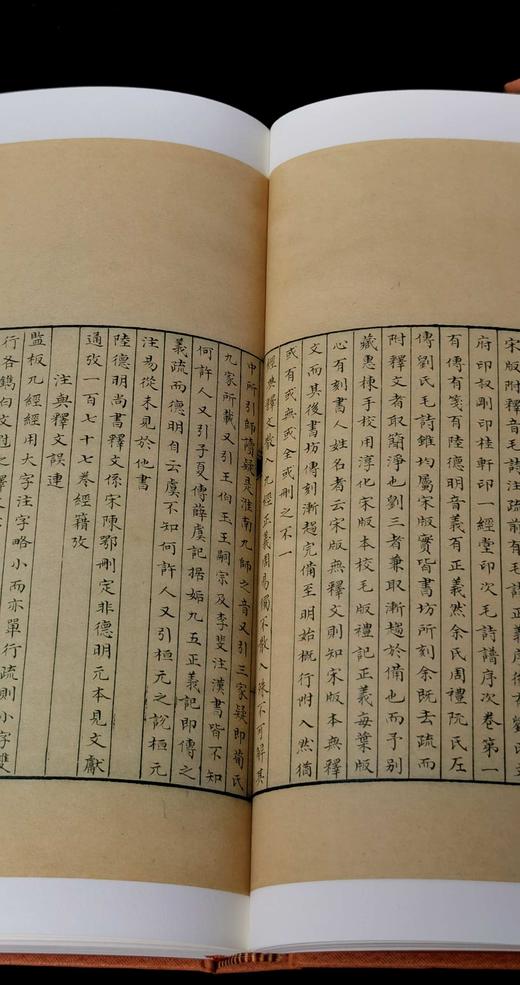 宋版附釋音毛詩注疏前有
府印叔剛印桂軒印 經堂印次毛詩譜序次卷第一
有傳有箋有陸德明音義有正義然余氏周禮阮氏左
傳劉氏毛詩雖均屬宋版實皆書坊所刻余既去疏而
附釋文者取簡淨也劉三者兼取漸趨於備也而予別
藏惠棟手校用淳化宋版本校毛版禮記正義每葉版
心有刻書人姓名者云宋版無釋文則知宋版本無釋
文而其後書坊傳刻漸趨完備至明始概行附入然猶
或有或無或全或刪之不一
經典釋文散入九經正義周易獨不散入殊不可解其
中所引師讀疑是淮南九師之音又引三家疑即荀氏
九家所載又引王伯玉王嗣宗及李斐注漢書皆不知
何許人又引子夏傳薛虞記據姤九五正義記即傳之
義疏而德明自云虞不知何許人又引桓元之說桓元
注易從未見於他書
陸德明尚書釋文係宋陳鄂刪定非德明元本見文獻
通攷一百七十七卷經籍攷
注與釋文誤連
監板九經經用大字注字略小而亦單行疏則小字雙
行各鐫白文